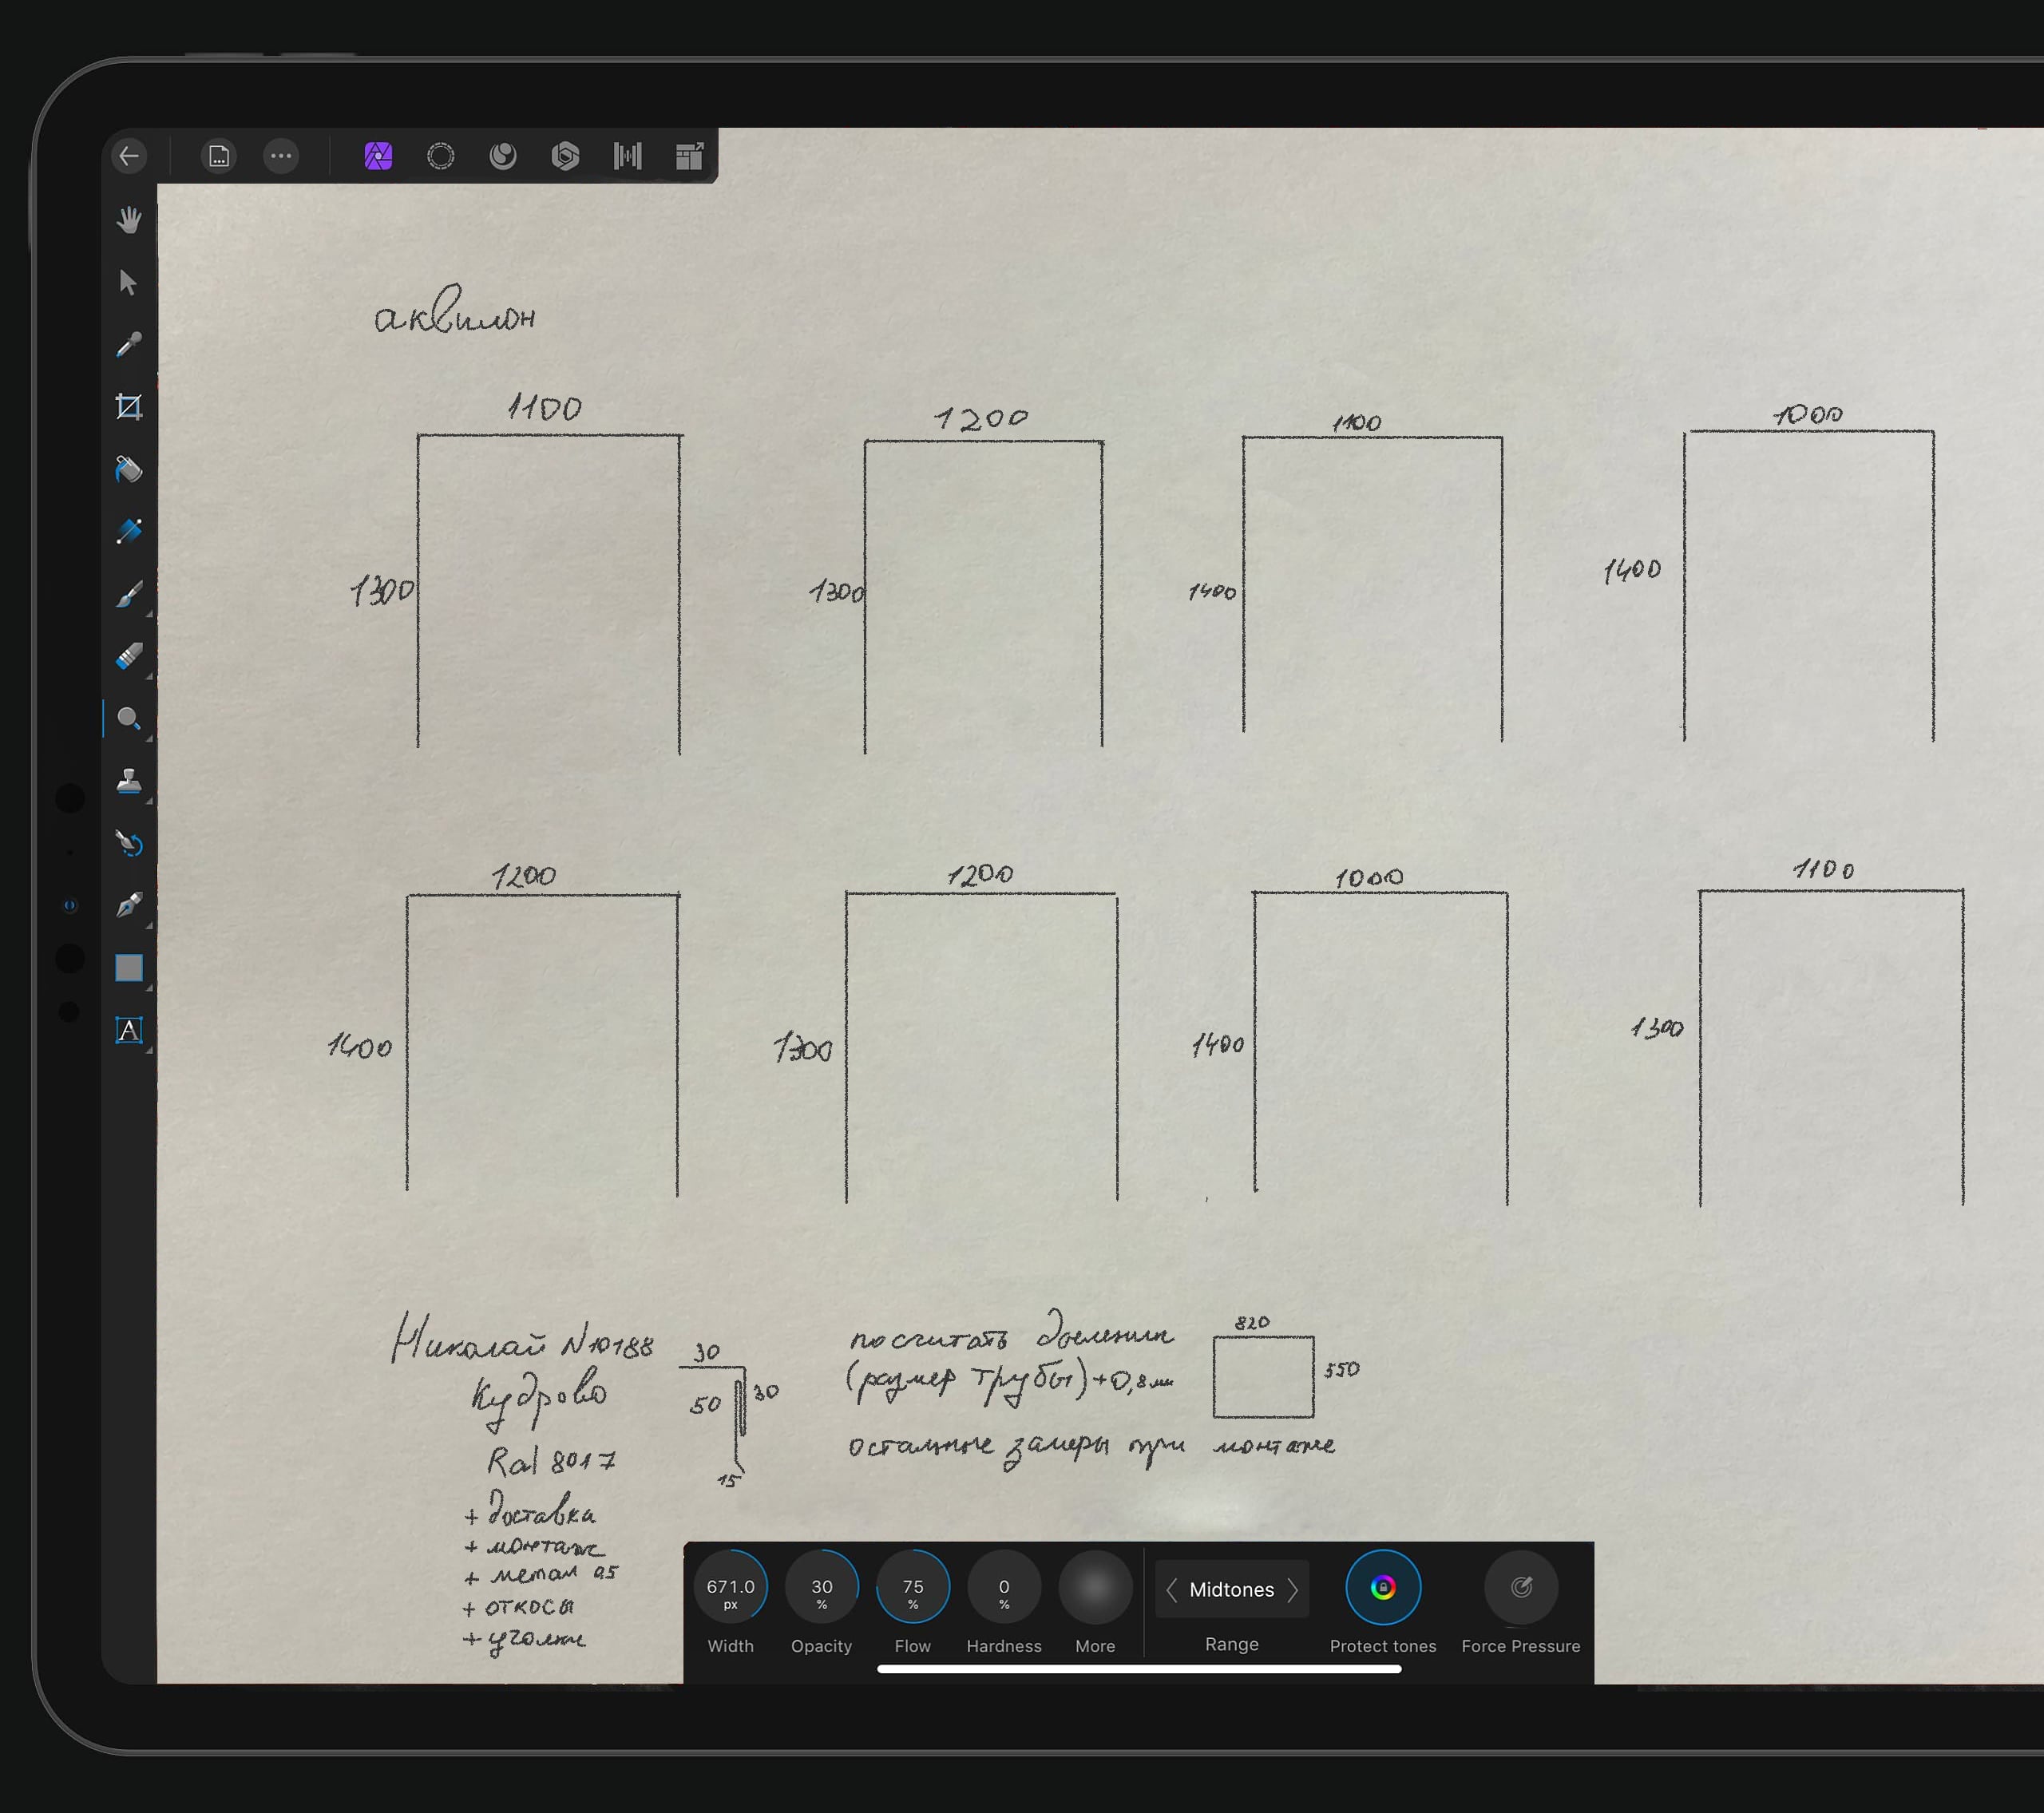 аквилон
1100
1200
1100
1000
1300
1300
1400
1400
1200
1200
1000
1100
1400
1300
1400
1300
Николай N10188
Кудрово
Ral 8017
+ доставка
+ монтаж
+ метал 0.5
+ откосы
+ уголки
30
50
30
15
посчитать
(размер трубы)+0,8мм
остальные замеры при монтаже
820
550
A
671.0 px
30 %
75 %
0 %
Midtones
Width
Opacity
Flow
Hardness
More
Range
Protect tones
Force Pressure